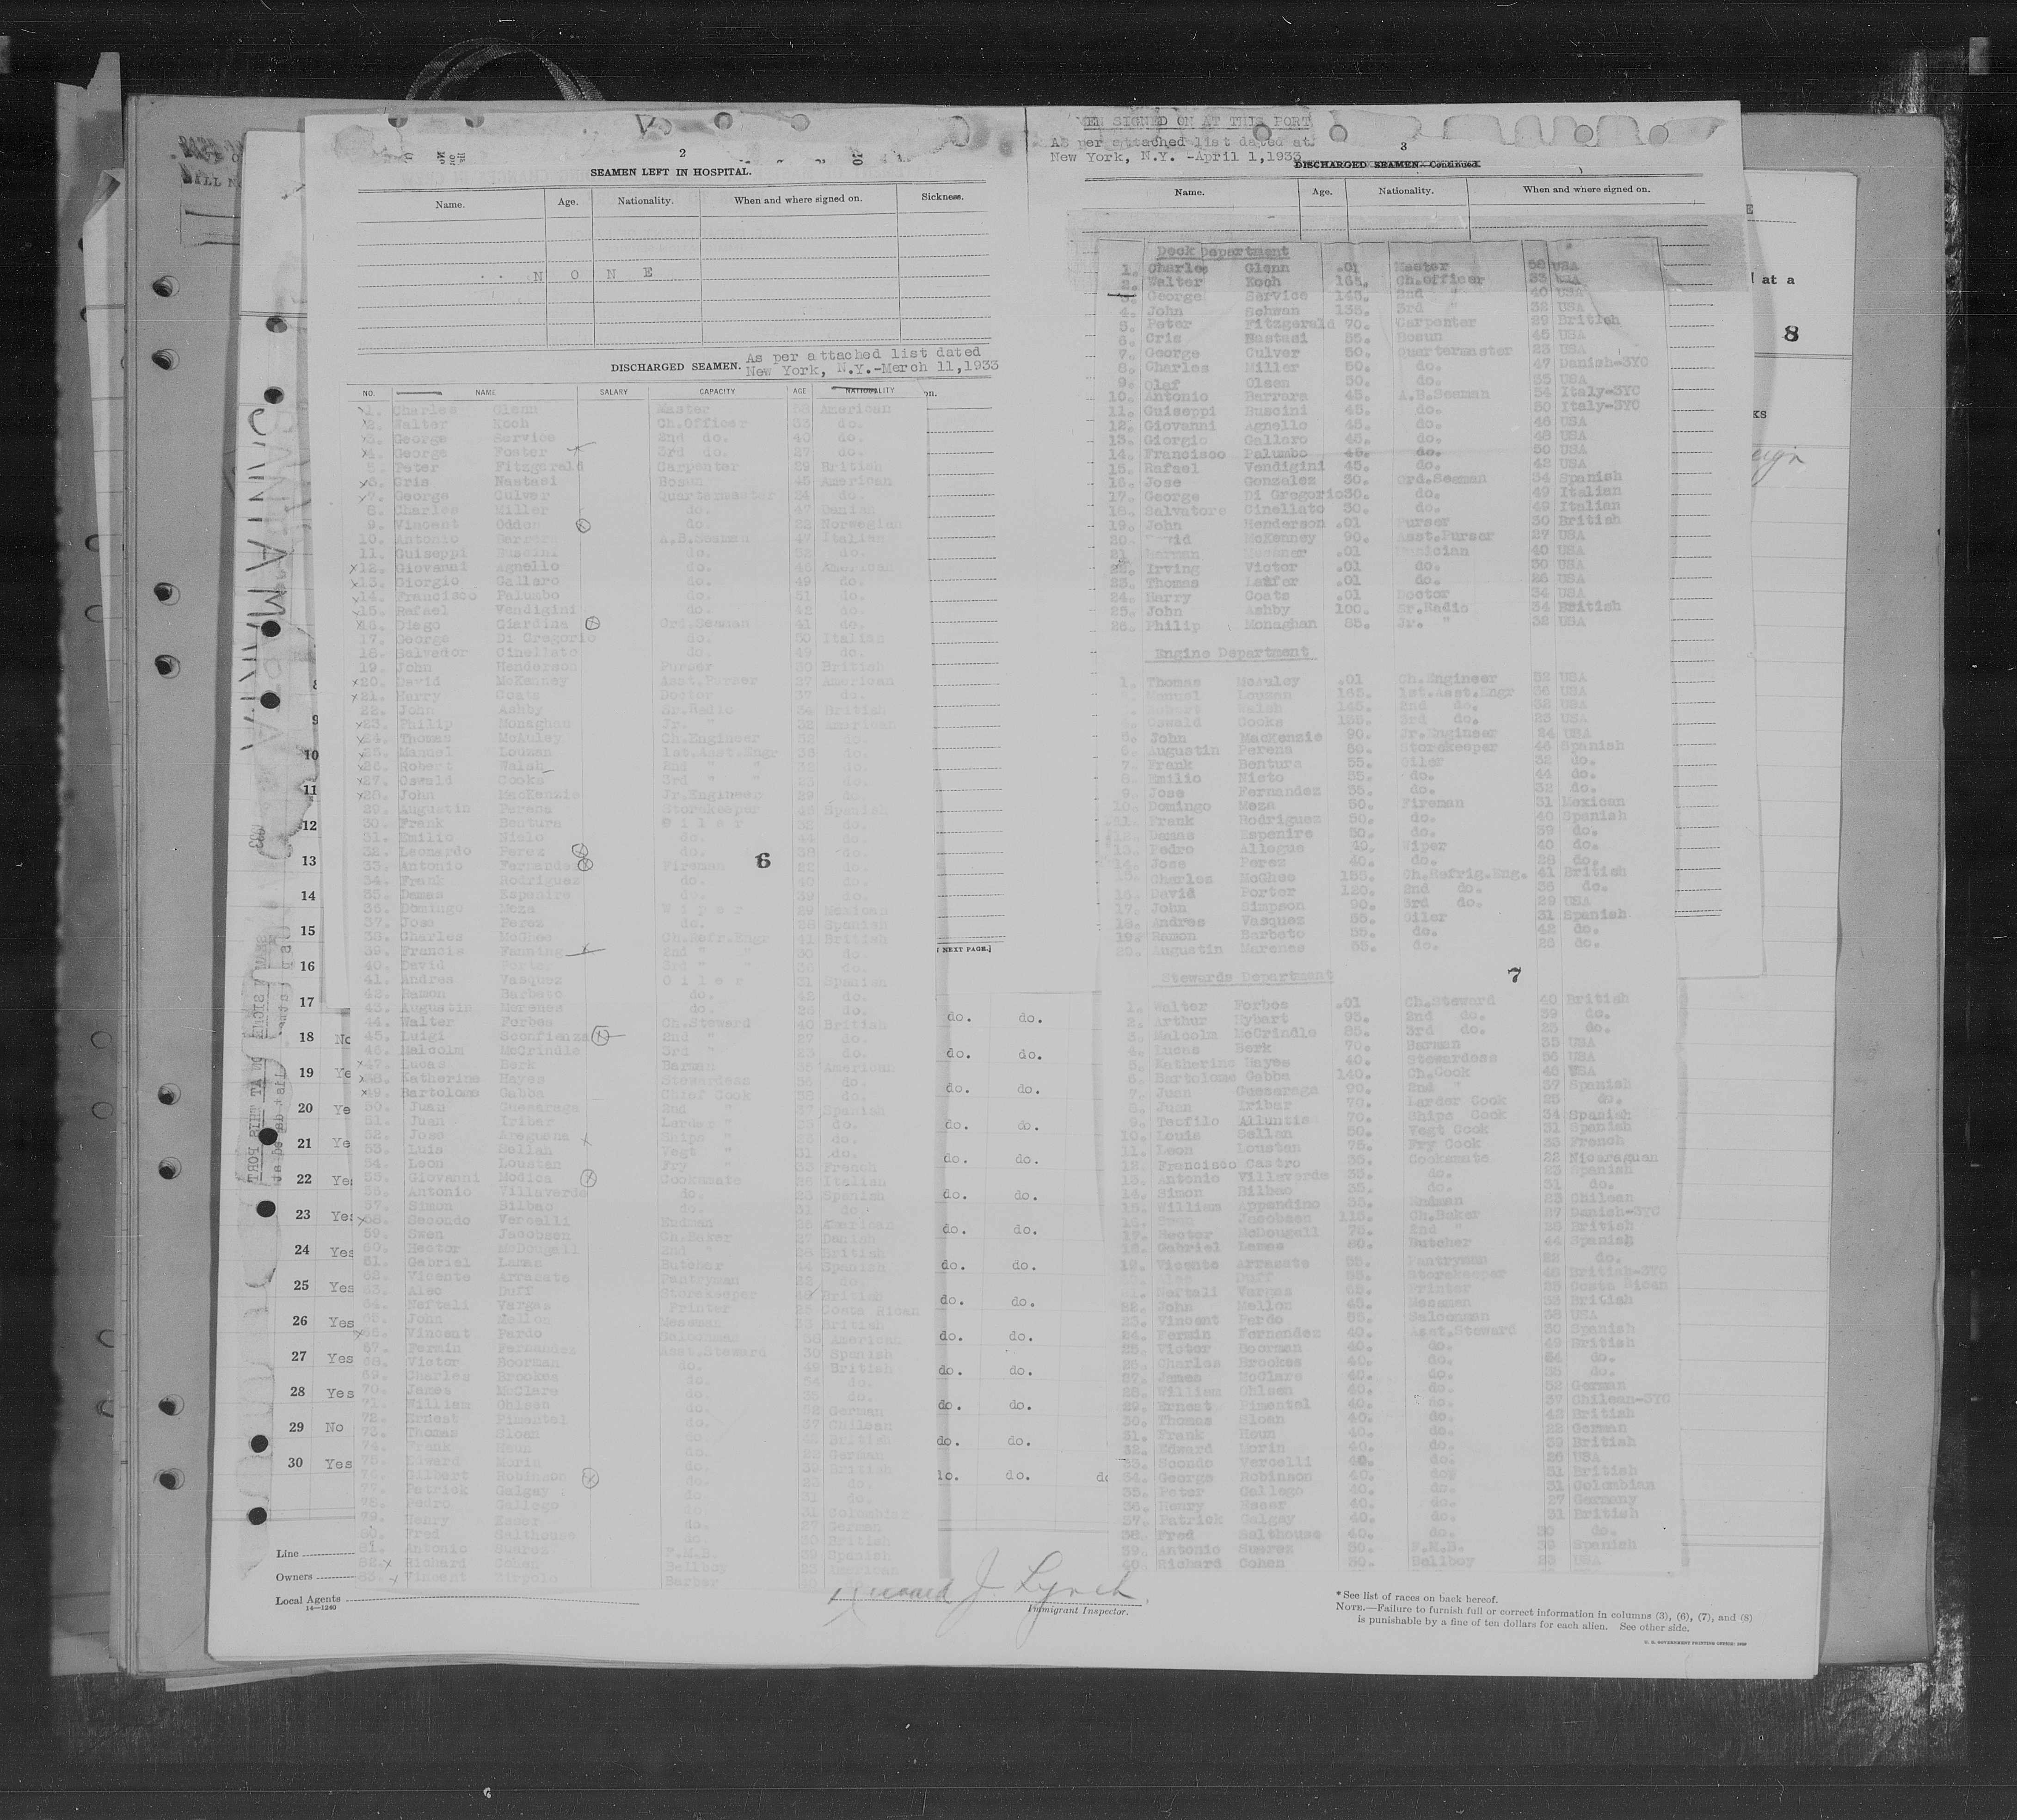 2
SEAMEN LEFT IN HOSPITAL.
Name. Age. Nationality. When and where signed on. Sickness.
N O N E
DISCHARGED SEAMEN. As per attached list dated
New York, N.Y.-March 11,1933
NO. NAME SALARY CAPACITY AGE NATIONALITY
1. Charles Glenn Master 58 American
2. Walter Koch Ch.Officer 33 do.
3. George Service 2nd do. 40 do.
4. George Foster 3rd do. 27 do.
5. Peter Fitzgerald Carpenter 29 British
6. Cris Nastasi Bosun 45 American
7. George Culver Quartermaster 24 do.
8. Charles Miller do. 47 Danish
9. Vincent Odden do. 22 Norwegian
10. Antonio Barrara A.B.Seaman 47 Italian
11. Guiseppi Buscini do. 52 do.
12. Giovanni Agnello do. 46 American
13. Giorgio Gallaro do. 49 do.
14. Francisco Palumbo do. 51 do.
15. Rafael Vendigini do. 42 do.
16. Diego Giardina Ord.Seaman 41 do.
17. George Di Gregorio do. 50 Italian
18. Salvador Cinellato do. 49 do.
19. John Henderson Purser 30 British
20. David McKenney Asst.Purser 27 American
21. Harry Coats Doctor 37 do.
22. John Ashby Sr.Radio 34 British
23. Philip Monaghan Jr. " 32 American
24. Thomas McAuley Ch.Engineer 52 do.
25. Manuel Louzan 1st.Asst.Engr 36 do.
26. Robert Walsh 2nd " " do.
27. Oswald Cooks 3rd " " do.
28. John MacKenzie Jr.Engineer 29 do.
29. Augustin Perena Storekeeper 46 Spanish
30. Frank Bentura O i l e r 32 do.
31. Emilio Nieto do. 44 do.
32. Leonardo Perez do. 38 do.
33. Antonio Fernandez Fireman 22 do.
34. Frank Rodriguez do. 40 do.
35. Damas Espenire do. 39 do.
36. Domingo Meza W i p e r 29 Mexican
37. Jose Perez do. 28 Spanish
38. Charles McGhee Ch.Refr.Engr 41 British
39. Francis Fanning 2nd " 30 do.
40. David Porter 3rd " " do.
41. Andres Vasquez O i l e r 31 Spanish
42. Ramon Barbeto do. do.
43. Augustin Merenes do. 26 do.
44. Walter Forbes Ch.Steward 40 British
45. Luigi Sconfienza 2nd " 27 do.
46. Malcolm McCrindle 3rd " 23 do.
47. Lucas Berk Barman 35 American
48. Katherine Hayes Stewardess 56 do.
49. Bartolome Gabba Chief Cook do.
50. Juan Guesaraga 2nd " 37 Spanish
51. Juan Iribar Larder " 25 do.
52. Jose Ships " do.
53. Luis Sellan Vegt " 31 do.
54. Leon Loustan Fry " 33 French
55. Giovanni Modica Cooksmate 26 Italian
56. Antonio Villaverde do. 23 Spanish
57. Simon Bilbao do. 31 do.
58. Secondo Vercelli 26 American
59. Swen Jacobsen Ch.Baker 27 Danish
60. Hector McDougall 2nd " 26 British
61. Gabriel Lamas Butcher 44 Spanish
62. Vicente Arrasate Pantryman do.
63. Alec Duff Storekeeper 46 British
64. Neftali Vargas Printer 25 Costa Rican
65. John Mellon Messman 33 British
66. Vincent Pardo Saloonman 38 American
67. Fermin Fernandez Asst.Steward 30 Spanish
68. Victor Boorman do. 49 British
69. Charles Brookes do. 54 do.
70. James McClare do. 35 do.
71. William Ohlsen do. 52 German
72. Ernest Pimentel do. 37 Chilean
73. Thomas Sloan do. British
74. Frank Houn do. 22 German
75. Edward Morin do. 39 British
76. Gilbert Robinson do. do.
77. Patrick Galgay do. 31 do.
78. Pedro Gallego do. 31 Colombian
79. Henry Esser do. 27 German
80. Fred Salthouse do. 30 British
81. Antonio Suarez P.M.B. 39 Spanish
82. Richard Cohen Bellboy 23 American
83. Vincent Barber
6
MEN SIGNED ON AT THIS PORT
As per attached list dated at
New York, N.Y. -April 1,1933
3
DISCHARGED SEAMEN. Continued.
Name. Age. Nationality. When and where signed on.
Deck Department
1. Charles Glenn .01 Master 58 USA
2. Walter Koch 165. Ch.Officer 33 USA
3. George Service 145. 2nd " 40 USA
4. John Schwan 135. 3rd " 32 USA
5. Peter Fitzgerald 70. Carpenter 29 British
6. Cris Nastasi 55. Bosun 45 USA
7. George Culver 50. Quartermaster 23 USA
8. Charles Miller 50. do. 47 Danish-3YC
9. Olaf Olsen 50. do. 35 USA
10. Antonio Barrara 45. A.B.Seaman 54 Italy-3YC
11. Guiseppi Buscini 45. do. 50 Italy-3YC
12. Giovanni Agnello 45. do. 46 USA
13. Giorgio Gallaro 45. do. 48 USA
14. Francisco Palumbo 45. do. 50 USA
15. Rafael Vendigini 45. do. 42 USA
16. Jose Gonzalez 30. Ord.Seaman 34 Spanish
17. George Di Gregorio 30. do. 49 Italian
18. Salvatore Cinellato 30. do. 49 Italian
19. John Henderson .01 Purser 30 British
20. David McKenney 90. Asst.Purser 27 USA
21. Herman .01 Musician 40 USA
22. Irving Victor .01 do. 30 USA
23. Thomas .01 do. 26 USA
24. Harry Coats .01 Doctor 34 USA
25. John Ashby 100. Sr.Radio 34 British
26. Philip Monaghan 85. Jr. " 32 USA
Engine Department
1. Thomas McAuley .01 Ch.Engineer 52 USA
Manuel Louzan 165. 1st.Asst.Engr 36 USA
Robert Walsh 145. 2nd do. 32 USA
4. Oswald Cooks 135. 3rd do. 25 USA
5. John MacKenzie 90. Jr.Engineer 24 USA
6. Augustin Perena 60. Storekeeper 46 Spanish
7. Frank Bentura 55. Oiler 32 do.
8. Emilio Nieto 55. do. 44 do.
9. Jose Fernandez 55. do. 32 do.
10. Domingo Meza 50. Fireman 31 Mexican
11. Frank Rodriguez 50. do. 40 Spanish
12. Damas Espenire 50. do. 39 do.
13. Pedro Allegue 40. Wiper 40 do.
14. Jose Perez 40. do. 28 do.
15. Charles McGhee 155. Ch.Refrig.Eng. 41 British
16. David Porter 120. 2nd do. 36 do.
17. John Simpson 90. 3rd do. 29 USA
18. Andres Vasquez 55. Oiler 31 Spanish
19. Ramon Barbeto 55. do. 42 do.
20. Augustin Merenes 55. do. 26 do.
Stewards Department
7
1. Walter Forbes .01 Ch.Steward 40 British
2. Arthur Hybart 95. 2nd do. 39 do.
3. Malcolm McCrindle 85. 3rd do. 23 do.
4. Lucas Berk 70. Barman 35 USA
5. Katherine Hayes 40. Stewardess 56 USA
6. Bartolome Gabba 140. Ch.Cook 46 USA
7. Juan Guesaraga 90. 2nd " 37 Spanish
8. Juan Iribar 70. Larder Cook 25 do.
9. Teofilo Alluntis 70. Ships Cook 34 Spanish
10. Louis Sellan 50. Vegt Cook 31 Spanish
11. Leon Loustan 75. Fry Cook 33 French
12. Francisco Castro 35. Cooksmate 22 Nicaraguan
13. Antonio Villaverde 35. do. 23 Spanish
14. Simon Bilbao 35. do. 31 do.
15. William Appendino 35. 23 Chilean
16. Swen Jacobsen 115. Ch.Baker 27 Danish-3YC
17. Hector McDougall 75. 2nd " 26 British
18. Gabriel Lamas 80. Butcher 44 Spanish
19. Vicente Arrasate 55. Pantryman 22 do.
Duff 55. Storekeeper 46 British-3YC
Neftali Vargas 65. Printer 25 Costa Rican
22. John Mellon 45. Messman 33 British
23. Vincent Pardo 55. Saloonman 38 USA
24. Fermin Fernandez 40. Asst.Steward 30 Spanish
25. Victor Boorman 40. do. 49 British
26. Charles Brookes 40. do. 54 do.
27. James McClare 40. do. 35 do.
28. William Ohlsen 40. do. 52 German
29. Ernest Pimentel 40. do. 37 Chilean-3YC
30. Thomas Sloan 40. do. 42 British
31. Frank Houn 40. do. 22 German
32. Edward Morin 40. do. 39 British
33. Scondo Vercelli 40. do. 26 USA
34. George Robinson 40. do. 31 British
35. Peter Gallego 40. do. 31 Colombian
36. Henry Esser 40. do. 27 Germany
37. Patrick Galgay 40. do. 31 British
38. Fred Salthouse 40. do. 30 do.
39. Antonio Suarez 30. P.M.B. 39 Spanish
40. Richard Cohen 30. Bellboy 23 USA
[NEXT PAGE.]
8
at a
8
9
10
11
12
13
14
15
16
17
18 No
19 Ye
20 Ye
21 Ye
22 Yes
23 Yes
24 Yes
25 Yes
26 Yes
27 Yes
28 Yes
29 No
30 Yes
do. do.
do. do.
do. do.
do. do.
do. do.
do. do.
do. do.
do. do.
do. do.
do. do.
do. do.
do. do.
do. do.
do. do.
Line
Owners
Local Agents
14—1240
J. Lynch
Immigrant Inspector.
* See list of races on back hereof.
NOTE.—Failure to furnish full or correct information in columns (3), (6), (7), and (8)
is punishable by a fine of ten dollars for each alien. See other side.
U. S. GOVERNMENT PRINTING OFFICE: 1929